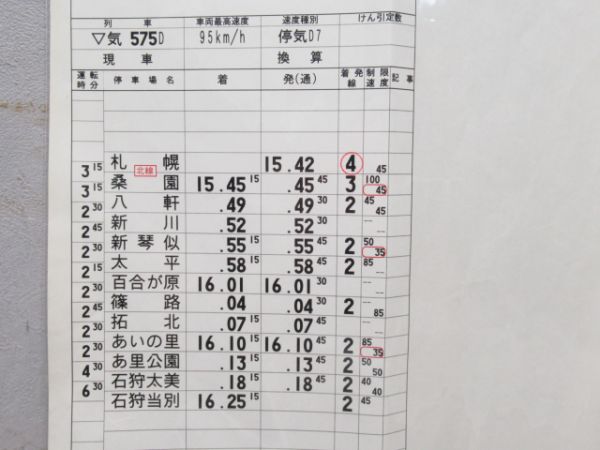 列車 車両最高速度 速度種別 けん引定数
▽気 575D 95km/h 停気D7
現車 換算
運転時分 停車場名 着 発(通) 着発線 制限速度 記事
札幌 15.42 4 45
3 15 北線
桑園 15.45 15 .45 45 3 100 45
3 15
八軒 .49 .49 30 2 45 45
2 30
新川 .52 .52 30 -- --
2 45
新琴似 .55 15 .55 45 2 50 35
2 30
太平 .58 15 .58 45 2 85 --
2 15
百合が原 16.01 16.01 30 -- --
2 30
篠路 .04 .04 30 2 -- 85
2 45
拓北 .07 15 .07 45 -- --
2 30
あいの里 16.10 15 16.10 45 2 85 35
2 30
あ里公園 .13 15 .13 45 2 50 50
4 30
石狩太美 .18 15 .18 45 2 40 40
6 30
石狩当別 16.25 15 2 45